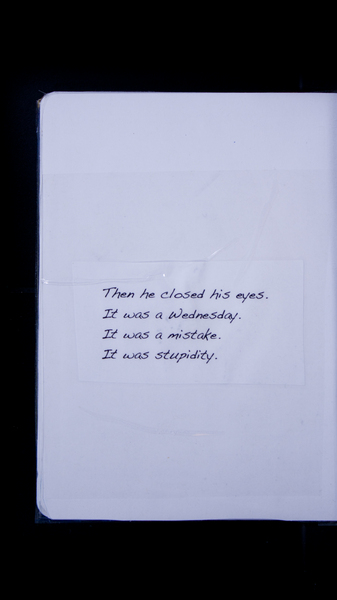 Then he closed his eyes.
It was a Wednesday.
It was a mistake.
It was stupidity.